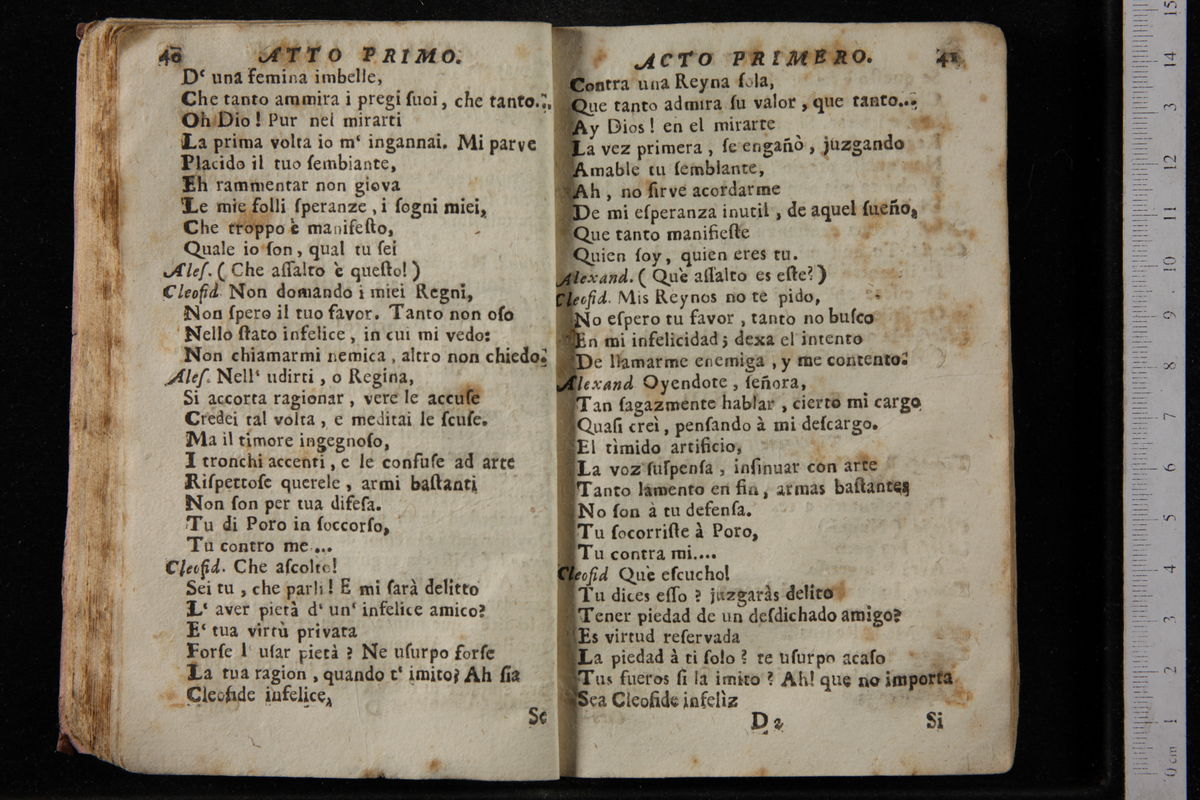 40 ATTO PRIMO.
D‘ una femina imbelle,
Che tanto ammira i pregi ſuoi, che tanto...
Oh Dio! Pur nel mirarti
La prima volta io m‘ ingannai. Mi parve
Placido il tuo ſembiante,
Eh rammentar non giova
Le mie folli ſperanze, i ſogni miei,
Che troppo è manifeſto,
Quale io ſon, qual tu ſei
Aleſ. (Che aſſalto è queſto!)
Cleofid. Non domando i miei Regni,
Non ſpero il tuo favor. Tanto non oſo
Nello ſtato infelice, in cui mi vedo:
Non chiamarmi nemica, altro non chiedo.
Aleſ. Nell‘ udirti, o Regina,
Si accorta ragionar, vere le accuſe
Credei tal volta, e meditai le ſcuſe.
Ma il timore ingegnoſo,
I tronchi accenti, e le confuſe ad arte
Riſpettoſe querele, armi baſtanti
Non ſon per tua difeſa.
Tu di Poro in ſoccorſo,
Tu contro me...
Cleofid. Che aſcolto!
Sei tu, che parli! E mi ſarà delitto
L‘ aver pietà d‘ un‘ infelice amico?
E‘ tua virtù privata
Forſe l‘ uſar pietà? Ne uſurpo forſe
La tua ragion, quando t‘ imito? Ah ſia
Cleofide infelice,
Se
ACTO PRIMERO. 41
Contra una Reyna ſola,
Que tanto admira ſu valor, que tanto...
Ay Dios! en el mirarte
La vez primera, ſe engañò, juzgando
Amable tu ſemblante,
Ah, no ſirve acordarme
De mi eſperanza inutil, de aquel ſueño,
Que tanto manifieſte
Quien ſoy, quien eres tu.
Alexand. (Què aſſalto es eſte?)
Cleofid. Mis Reynos no te pido,
No eſpero tu favor, tanto no buſco
En mi infelicidad; dexa el intento
De llamarme enemiga, y me contento.
Alexand Oyendote, ſeñora,
Tan ſagazmente hablar, cierto mi cargo
Quaſi creì, penſando à mi deſcargo.
El tìmido artificio,
La voz ſuſpenſa, inſinuar con arte
Tanto lamento en fin, armas baſtantes
No ſon à tu defenſa.
Tu ſocorriſte à Poro,
Tu contra mi....
Cleofid Què eſcucho!
Tu dices eſſo? juzgaràs delito
Tener piedad de un deſdichado amigo?
Es virtud reſervada
La piedad à ti ſolo? te uſurpo acaſo
Tus fueros ſi la imito? Ah! que no importa
Sea Cleofide infelìz
D2 Si
0 cm 1 2 3 4 5 6 7 8 9 10 11 12 3 14 15